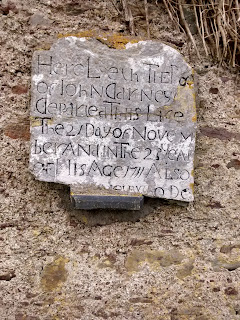 Here Lyeth The Bod
of Iohn Garne
departed This Life
The 21 Day of Novem
ber And In The 23 Year
of His Age 1711 Also
De